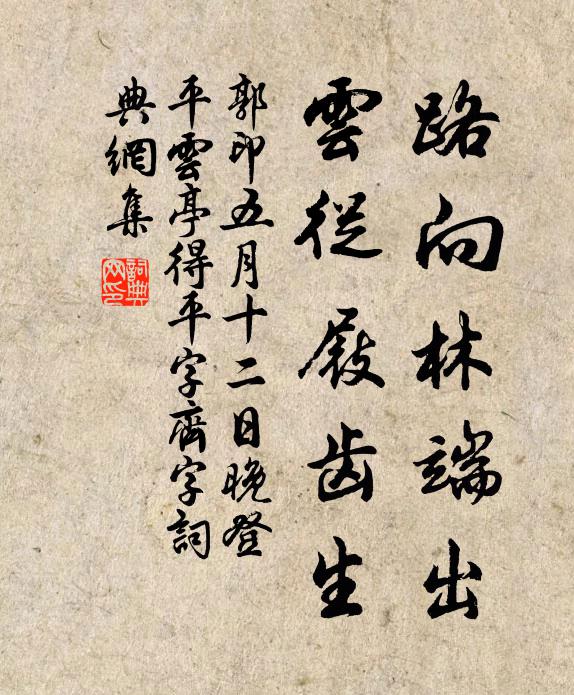 路向林端出
雲從屐齒生
郭印五月十二日晚登
平雲亭得平字齊字詞
典網集
詞典網印